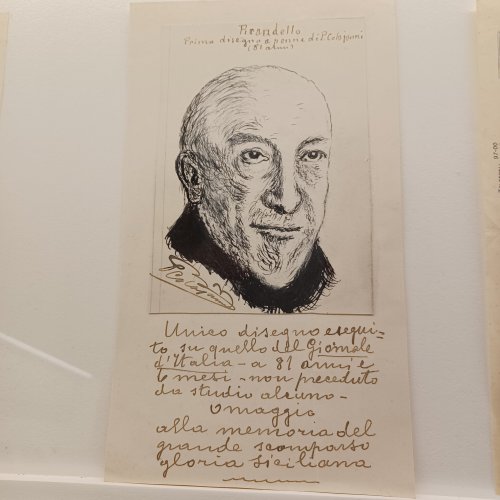 Pirandello
Primo disegno a penna di P. Colajanni
(81 anni)
Unico disegno esegui-
to su quello del Giornale
d'Italia - a 81 anni e
6 mesi - non preceduto
da studio alcuno -
Omaggio
alla memoria del
grande scomparso
gloria siciliana